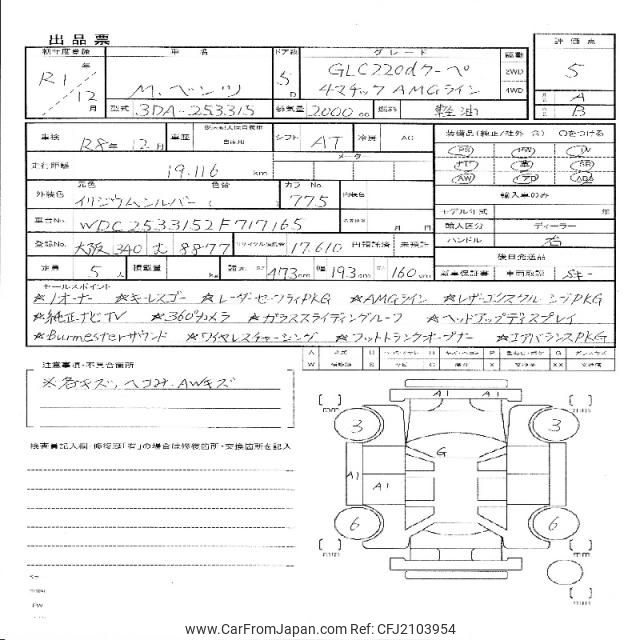 出品票
初年度登録 車名 ドア数 グレード 評価点
R1年12月 M.ベンツ 5D GLC220dクーペ 2WD 5
4マチック AMGライン 4WD A
型式 3DA-253315 排気量 2000cc 燃料 軽油 B
車検 R8年12月 車歴 自家用 シフト AT 冷房 AC 装備品(純正/社外 含) ○をつける
走行距離 19,116 km メータ PS PW AW
外装色 元色 色替 カラーNo. 内装色 輸入車のみ
イリジウムシルバー ( 775 モデル年式 年
車台No. WDC2533152F717165 月 日 輸入区分 ディーラー
登録No. 大阪 340 む 8877 リサイクル預託金 17,610 円預託済 未預託 ハンドル 右
定員 5人 積載量 kg 諸元 長さ 473cm 幅 193cm 高さ 160cm 後日発送品
新車保証書 車両取説 Sキー
セールスポイント
☆1オーナー ☆キーレスゴー ☆レーダーセーフティPKG ☆AMGライン ☆レザーエクスクルーシブPKG
☆純正ナビTV ☆360°カメラ ☆ガラススライディングルーフ ☆ヘッドアップディスプレイ
☆Burmesterサウンド ☆ワイヤレスチャージング ☆フットトランクオープナー ☆エアバランスPKG
注意事項・不具合箇所
※若キズ、ヘコみ、AWキズ
検査員記入欄・修復歴「有」の場合は修復箇所・交換箇所を記入
A1 A1
3 3
G
A1 A1
6 6
mm mm
mm mm
www.CarFromJapan.com Ref: CFJ2103954